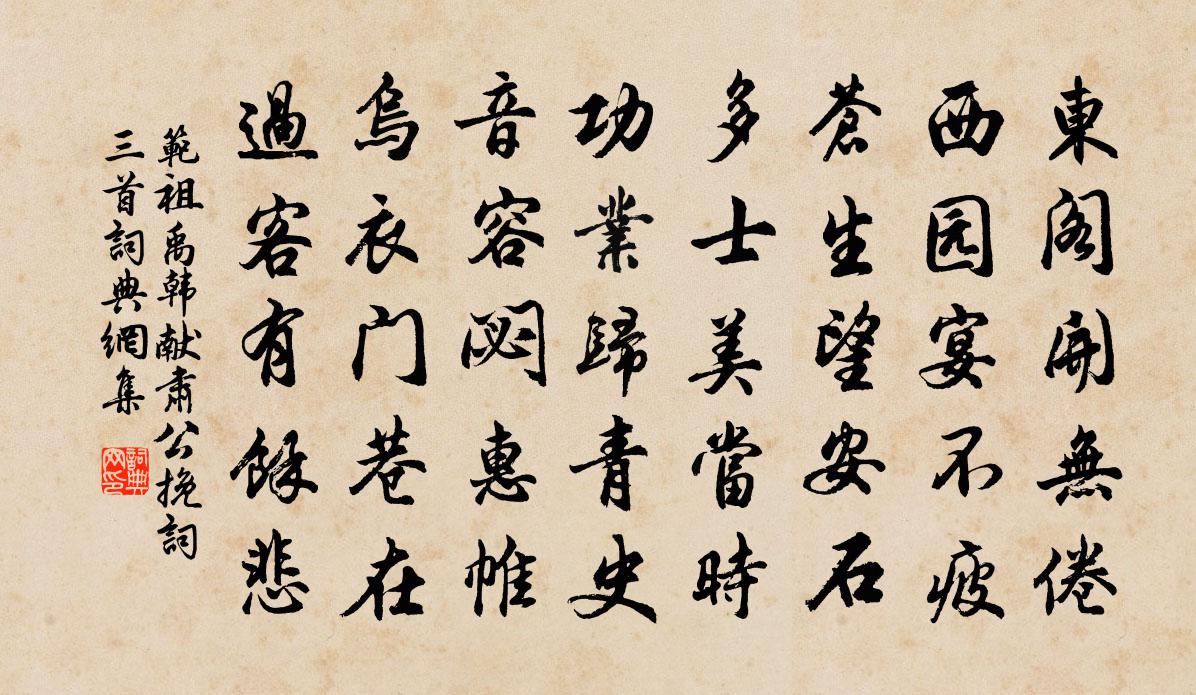 東閣開無倦
西园宴不疲
蒼生望安石
多士美當時
功業歸青史
音容閟惠帷
烏衣门巷在
過客有餘悲
範祖禹韩献肃公挽詞
三首詞典網集
詞典网印